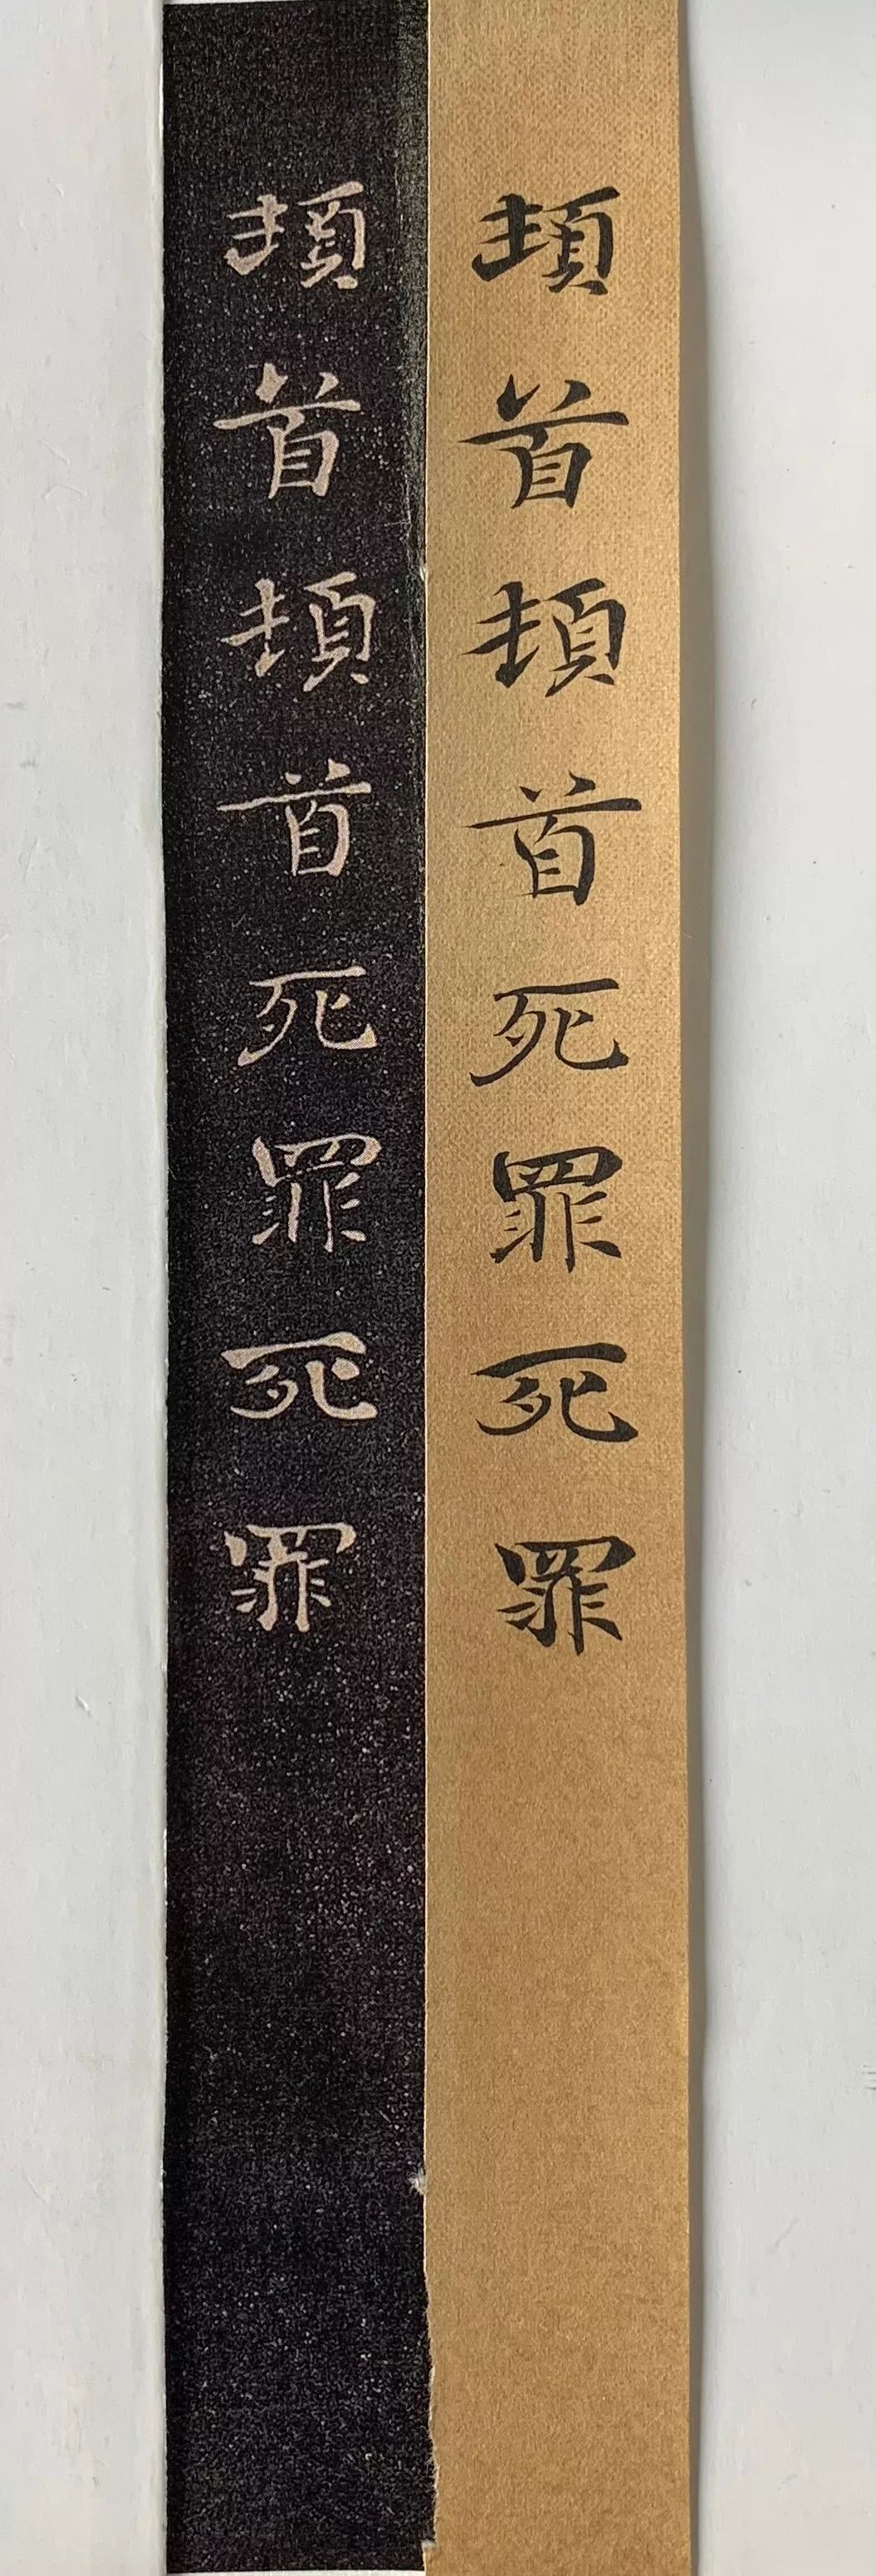 頓首頓首死罪死罪
頓首頓首死罪死罪